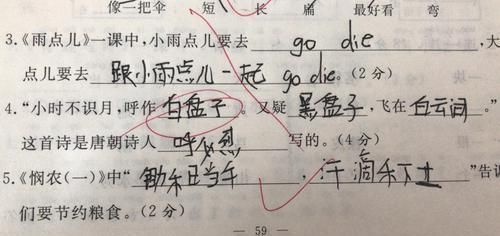 像一把伞 短 长 扁 最好看 弯
3.《雨点儿》一课中,小雨点儿要去 go die ,大
点儿要去 跟小雨点儿一起 go die。(2分)
4.“小时不识月,呼作 白盘子 。又疑 黑盘子 ,飞在 白云间 。”
这首诗是唐朝诗人 呼必烈 写的。(4分)
5.《悯农(一)》中“ 锄禾日当午 , 汗滴禾下土 ”告诉
们要节约粮食。(2分)
— 59 —